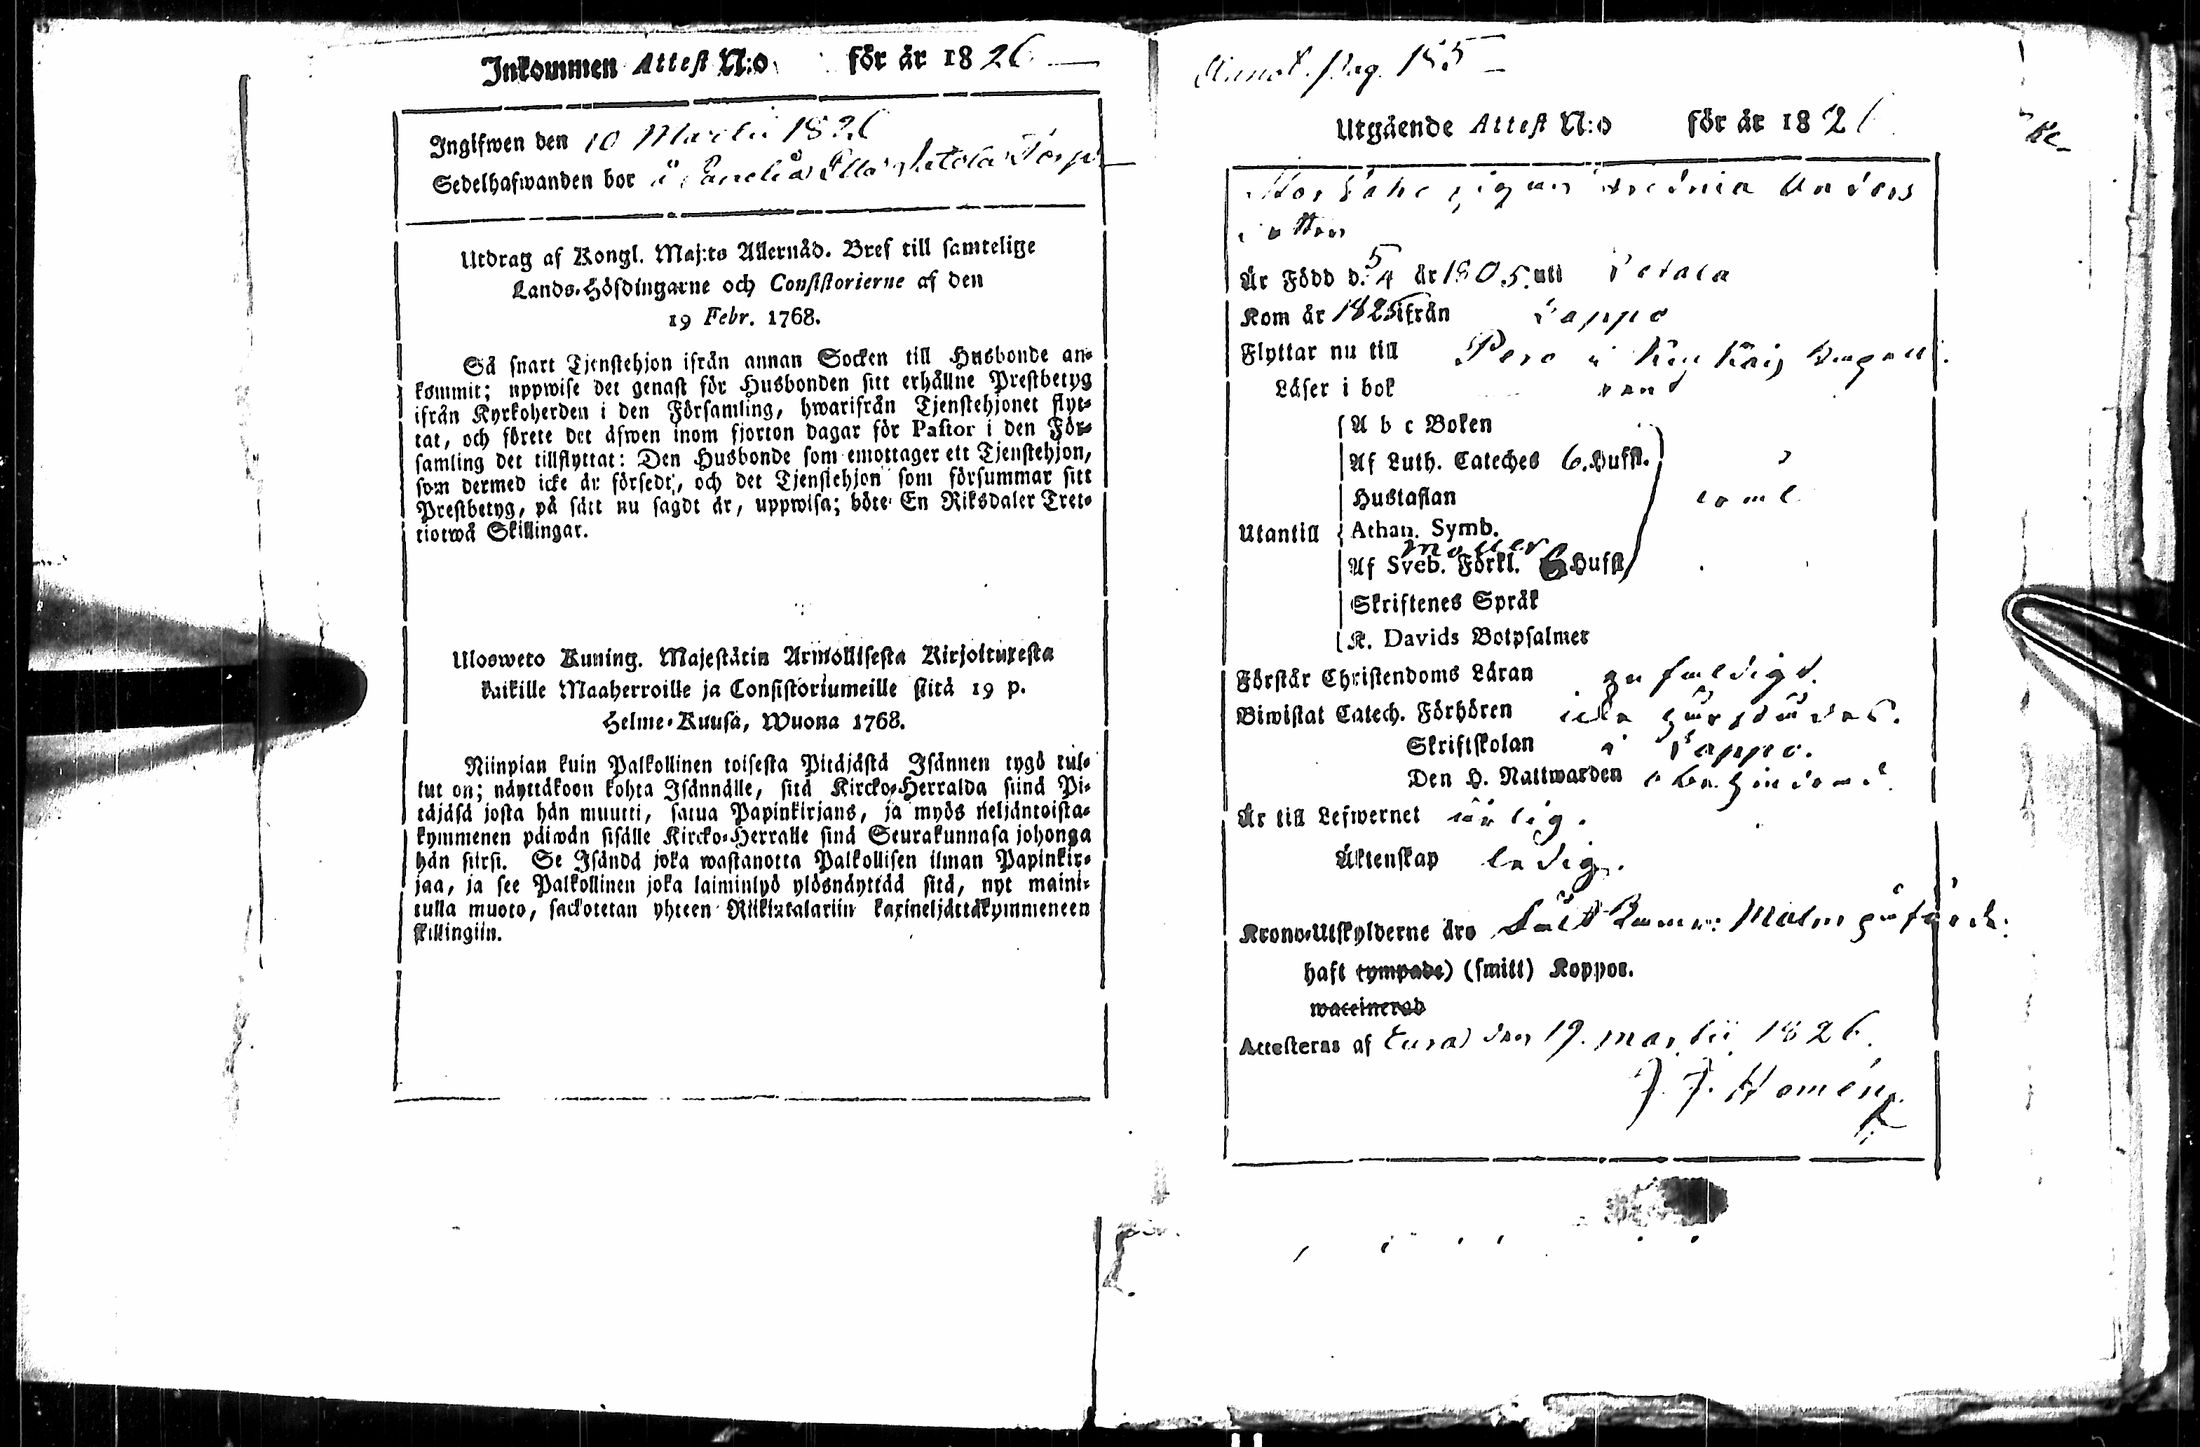 Inkommen Attest N:o för år 1826
Ingifwen den 10 Martii 1826
Sedelhafwanden bor å Torp
Utdrag af Kongl. Maj:ts Allernåd. Bref till samtelige
Lands-Höfdingarne och Consistorierne af den
19 Febr. 1768.
Så snart Tjenstehjon ifrån annan Socken till Husbonde an-
kommit; uppwise det genast för Husbonden sitt erhållne Prestbetyg
ifrån Kyrkoherden i den Församling, hwarifrån Tjenstehjonet flyt-
tat, och förete det äfwen inom fjorton dagar för Pastor i den För-
samling det tillflyttat: Den Husbonde som emottager ett Tjenstehjon,
som dermed icke är försedt, och det Tjenstehjon som försummar sitt
Prestbetyg, på sätt nu sagdt är, uppwisa; böte En Riksdaler Tret-
tiotwå Skillingar.
Ulosweto Kuning. Majestätin Armollisesta Kirjoituxesta
kaikille Maaherroille ja Consistoriumeille siitä 19 p.
Helme-Kuusa, Wuona 1768.
Niinpian kuin Palkollinen toisesta Pitäjästä Isännen tygö tul-
lut on; näyttäkoon kohta Isännälle, sitä Kircko-Herralda siinä Pi-
täjäsä josta hän muutti, satua Papinkirjans, ja myös neljäntoista-
kymmenen päiwän sisälle Kircko-Herralle sinä Seurakunnasa johonga
hän siirsi. Se Isändä joka wastanotta Palkollisen ilman Papinkir-
jaa, ja see Palkollinen joka laiminlyö ylösnäyttää sitä, nyt maini-
tulla muoto, sackotetan yhteen Riikintalariin kaxineljättäkymmeneen
skillingiin.
Annot. pag. 155
Utgående Attest N:o för år 182
pigan Anders
dotter
Är Född d. 5/4 år 1805 uti
Kom år 1825 ifrån Lappo
Flyttar nu till Pero i
Läser i bok rent
A b c Boken
Af Luth. Cateches 6. Hufst.
Hustaflan
Utantill Athan. Symb.
Af Sveb. Förkl. 6 Hufst
Skriftenes Språk
K. Davids Botpsalmer
Förstår Christendoms Läran enfaldigt.
Biwistat Catech. Förhören icke
Skriftskolan i Lappo.
Den H. Nattwarden obehindrad.
Är till Lefwernet ärlig.
Äktenskap ledig.
Krono-Utskylderne äro
haft tympade) (smitt) Koppor.
waccinerad
Attesteras af Eura den 19. martii 1826.
J. J. Homén